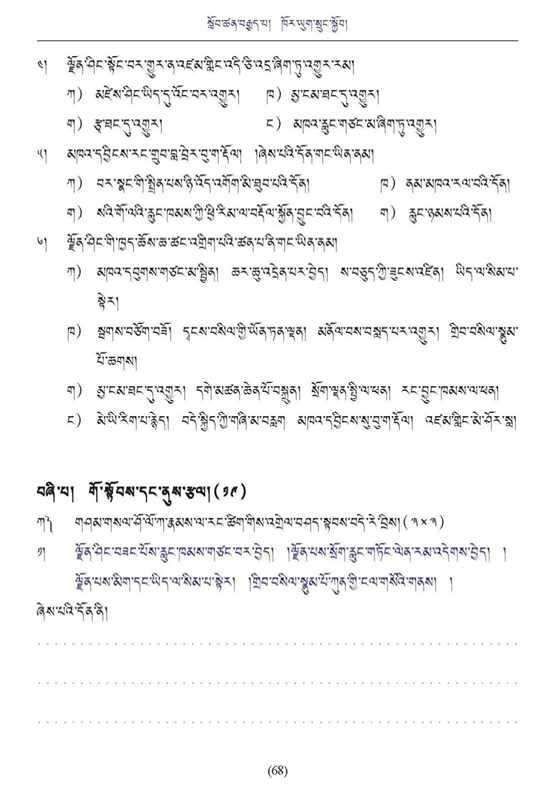 སློབ་ཚན་བརྒྱད་པ། ཁོར་ཡུག་སྲུང་སྐྱོབ།
༤། ལྗོན་ཤིང་སྟོང་བར་གྱུར་ན་འཛམ་གླིང་འདི་ཅི་འདྲ་ཞིག་ཏུ་འགྱུར་རམ།
ཀ) མཛེས་ཤིང་ཡིད་དུ་འོང་བར་འགྱུར། ཁ) མྱ་ངམ་ཐང་དུ་འགྱུར།
ག) རྩྭ་ཐང་དུ་འགྱུར། ང) མཁའ་རླུང་གཙང་མ་ཞིག་ཏུ་འགྱུར།
༥། མཁའ་དབྱིངས་རང་གྲུབ་བླ་བྲེར་བུ་ག་རྡོལ། །ཞེས་པའི་དོན་གང་ཡིན་ནམ།
ཀ) བར་སྣང་གི་སྤྲིན་པས་ཉི་འོད་འགོག་མི་ཐུབ་པའི་དོན། ཁ) ནམ་མཁའ་རལ་བའི་དོན།
ག) སའི་གོ་ལའི་རླུང་ཁམས་ཀྱི་ཕྱི་རིམ་ལ་བརྡོལ་སྐྱོན་བྱུང་བའི་དོན། ག) རླུང་ཉམས་པའི་དོན།
༦། ལྗོན་ཤིང་གི་ཁྱད་ཆོས་ཆ་ཚང་འགྲིག་པའི་ཚན་པ་ནི་གང་ཡིན་ནམ།
ཀ) མཁའ་དབུགས་གཙང་མ་སྦྱིན། ཆར་ཆུ་འདྲེན་པར་བྱེད། ས་བཅུད་ཀྱི་ཟུངས་འཛིན། ཡིད་ལ་སིམ་པ་
སྟེར།
ཁ) སྦྲགས་བཙོག་བཟོ། དྭངས་བསིལ་གྱི་ཡོན་ཏན་ལྡན། མནོལ་བས་བསླད་པར་འགྱུར། གྲིབ་བསིལ་སྙུམ་
པོ་ཆགས།
ག) མྱ་ངམ་ཐང་དུ་འགྱུར། དགེ་མཚན་ཆེན་པོ་བསྐྲུན། སྲོག་ལྡན་སྤྱི་ལ་ཕན། རང་བྱུང་ཁམས་ལ་ཕན།
ང) མེ་ཡི་རིག་པ་རྙེད། བདེ་སྐྱིད་ཀྱི་གཞི་མ་བརླག མཁའ་དབྱིངས་སུ་བུ་ག་རྡོལ། འཛམ་གླིང་མེ་ཤོར་སླ།
བཞི་པ། གོ་སྟོབས་དང་ནུས་རྩལ། (༡༩)
ཀ༽ གཤམ་གསལ་ཤོ་ལོ་ཀ་རྣམས་ལ་རང་ཚིག་གིས་འགྲེལ་བཤད་སྟབས་བདེ་རེ་བྲིས། (༣×༣)
༡། ལྗོན་ཤིང་བཟང་པོས་རླུང་ཁམས་གཙང་བར་བྱེད། །ལྗོན་པས་སྲོག་རླུང་གཏོང་ལེན་རམ་འདེགས་བྱེད། །
ལྗོན་པས་མིག་དང་ཡིད་ལ་སིམ་པ་སྟེར། །གྲིབ་བསིལ་སྙུམ་པོ་ཀུན་གྱི་ངལ་གསོའི་གནས། །
ཞེས་པའི་དོན་ནི།
(68)